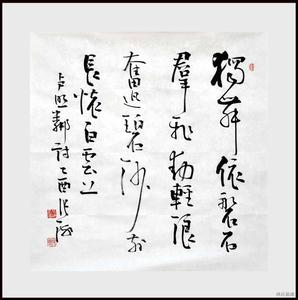 獨舞依磐石
羣飛動輕浪
奮迅碧沙前
長懷白雲上
卢照鄰詩乙酉